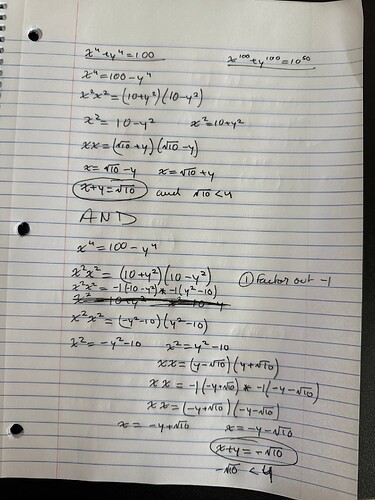 x⁴+y⁴=100    x¹⁰⁰+y¹⁰⁰=10⁶⁰
x⁴=100-y⁴
x²x²=(10+y²)(10-y²)
x²=10-y²    x²=10+y²
xx=(√10+y)(√10-y)
x=√10-y    x=√10+y
x+y=√10 and √10<4
AND
x⁴=100-y⁴
x²x²=(10+y²)(10-y²)    ① Factor out -1
x²x²=-1(-10-y²)*-1(y²-10)
x²=10+y²    x²=10-y
x²x²=(-y²-10)(y²-10)
x²=-y²-10    x²=y²-10
xx=(y-√10)(y+√10)
xx=-1(-y+√10)*-1(-y-√10)
xx=(-y+√10)(-y-√10)
x=-y+√10    x=-y-√10
x+y=-√10
-√10<4